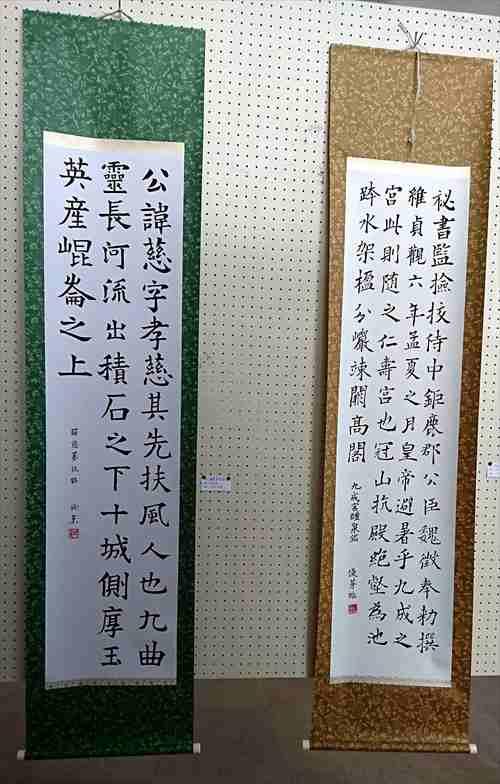 祕書監撿挍侍中鉅鹿郡公臣魏徵奉勅撰
維貞觀六年孟夏之月皇帝避暑乎九成之
宮此則随之仁壽宮也冠山抗殿絶壑為池
跨水架楹分巖竦闕高閣
九成宮醴泉銘
公諱慈字孝慈其先扶風人也九曲
靈長河流出積石之下十城側厚玉
英産崐崙之上